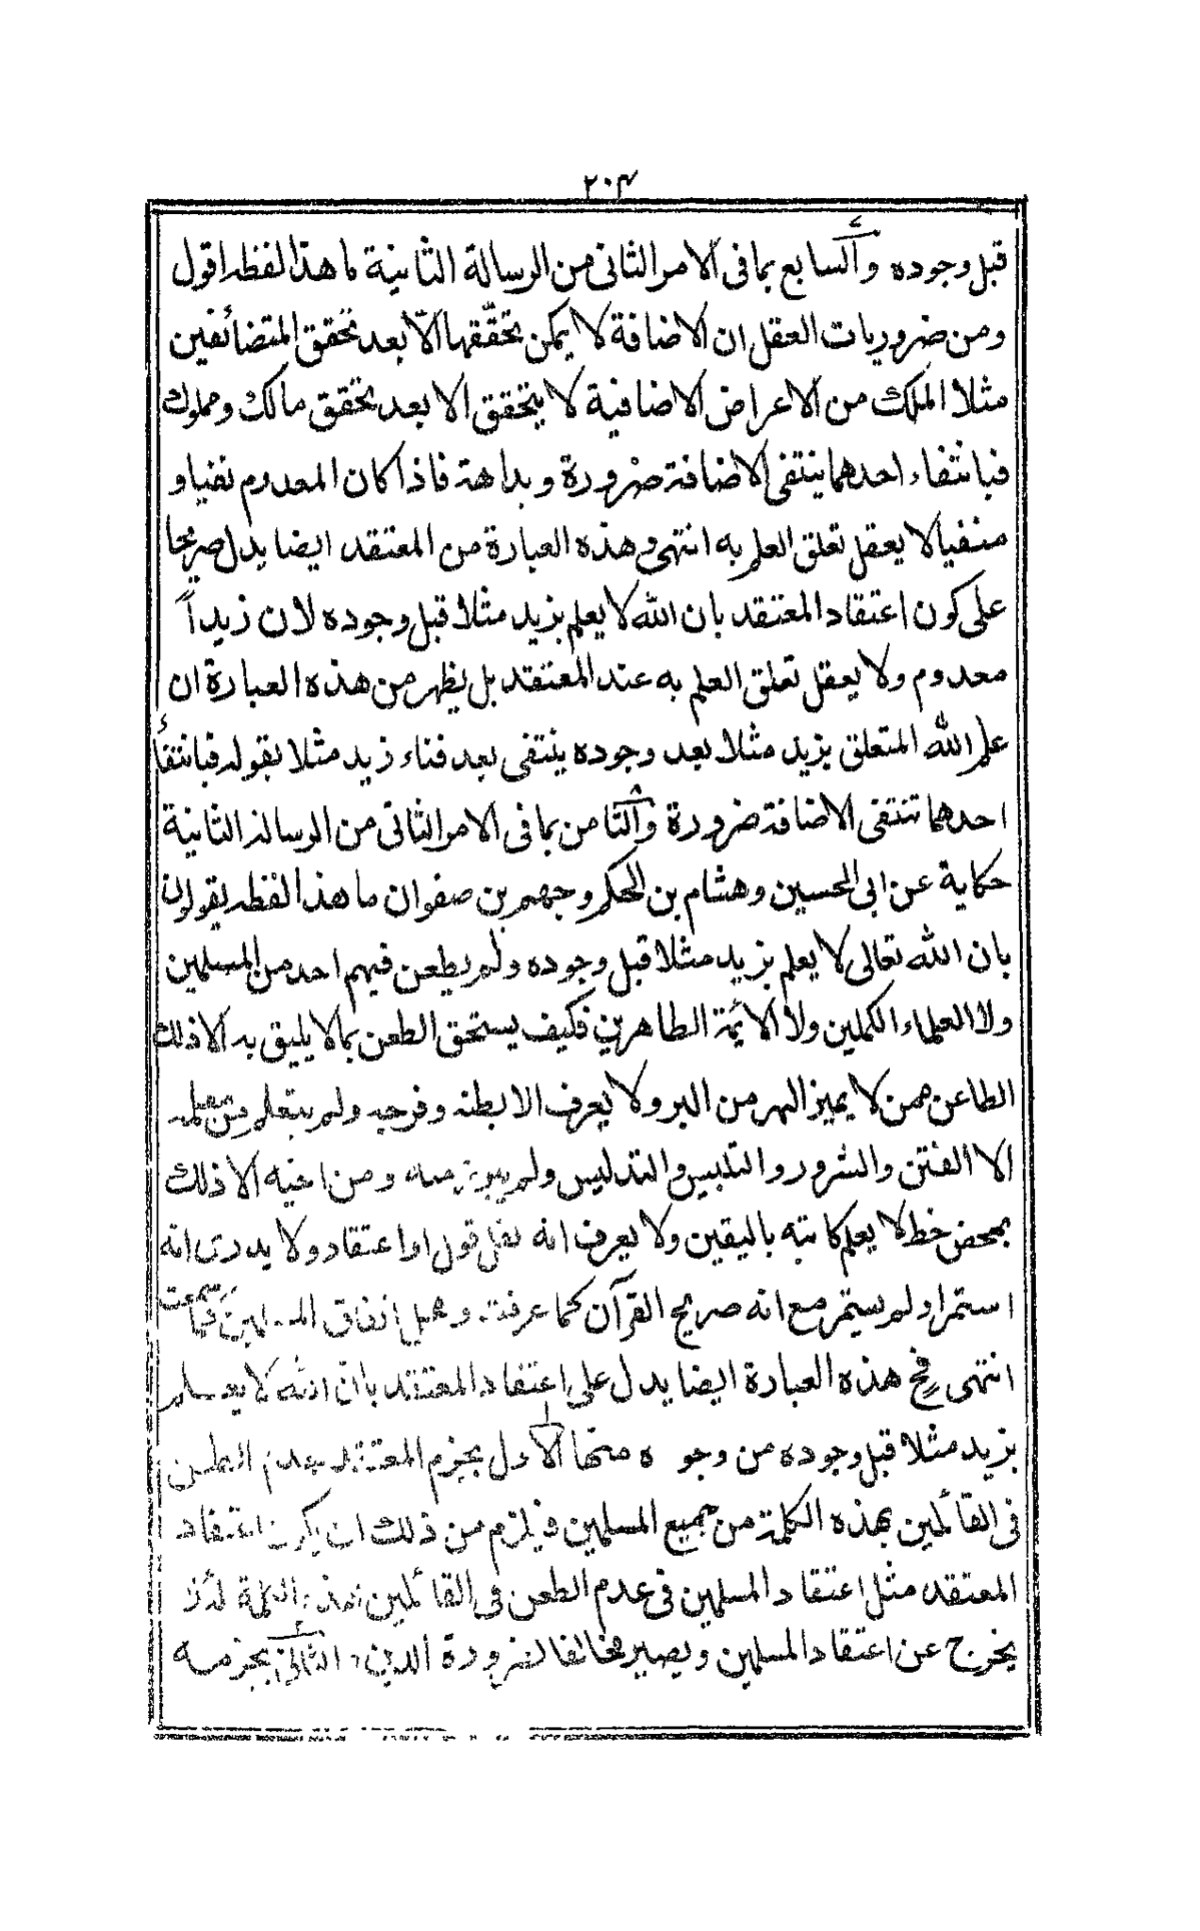 ٢٠٣
قبل وجوده والسابع بما فى الامر الثانى من الرسالة الثانية ما هذا لفظه اقول
ومن ضروريات العقل ان الاضافة لا يمكن تحقّقها الّا بعد تحقق المتضائفين
مثلا الملك من الاعراض الاضافية لا يتحقق الا بعد تحقق مالك ومملوك
فبانتفاء احدهما ينتفى الاضافة ضرورة وبداهة فاذا كان المعدوم نفيا و
منفيا لا يعقل تعلق العلم به انتهى وهذه العبارة من المعتقد ايضا يدل صريحا
على كون اعتقاد المعتقد بان الله لا يعلم بزيد مثلا قبل وجوده لان زيداً
معدوم ولا يعقل تعلق العلم به عند المعتقد بل يظهر من هذه العبارة ان
علم الله المتعلق بزيد مثلا بعد وجوده ينتفى بعد فناء زيد مثلا بقوله فبانتفاء
احدهما تنتفى الاضافة ضرورة والثامن بما فى الامر الثانى من الرسالة الثانية
حكاية عن ابى الحسين وهشام بن الحكم وجهم بن صفوان ما هذا لفظه يقولون
بان الله تعالى لا يعلم بزيد مثلا قبل وجوده ولم يطعن فيهم احد من المسلمين
ولا العلماء الكملين ولا الائمة الطاهرين فكيف يستحق الطعن بما لا يليق به الا ذلك
الطاعن ممن لا يميز الهر من البر ولا يعرف الا بطنه وفرجه ولم يتعلم من معلمه
الا الفتن والشرور والتلبيس والتدليس ولم يبرز منه ومن اخيه الا ذلك
بمحض خط لا يعلم كاتبه باليقين ولا يعرف انه نقل قول او اعتقاد ولا يدرى انه
استمر او لم يستمر مع انه صريح القرآن كما عرفته ومحل اتفاق المسلمين كما سمعت
انتهى فح هذه العبارة ايضا يدل على اعتقاد المعتقد بان الله لا يعلم
بزيد مثلا قبل وجوده من وجوه منها الاول بجزم المعتقد بعدم الطعن
فى القائلين بهذه الكلمة من جميع المسلمين فيلزم من ذلك ان يكون اعتقاد
المعتقد مثل اعتقاد المسلمين فى عدم الطعن فى القائلين بهذه الكلمة لئلا
يخرج عن اعتقاد المسلمين ويصير مخالفا لضرورة الدين والثانى بجزمه